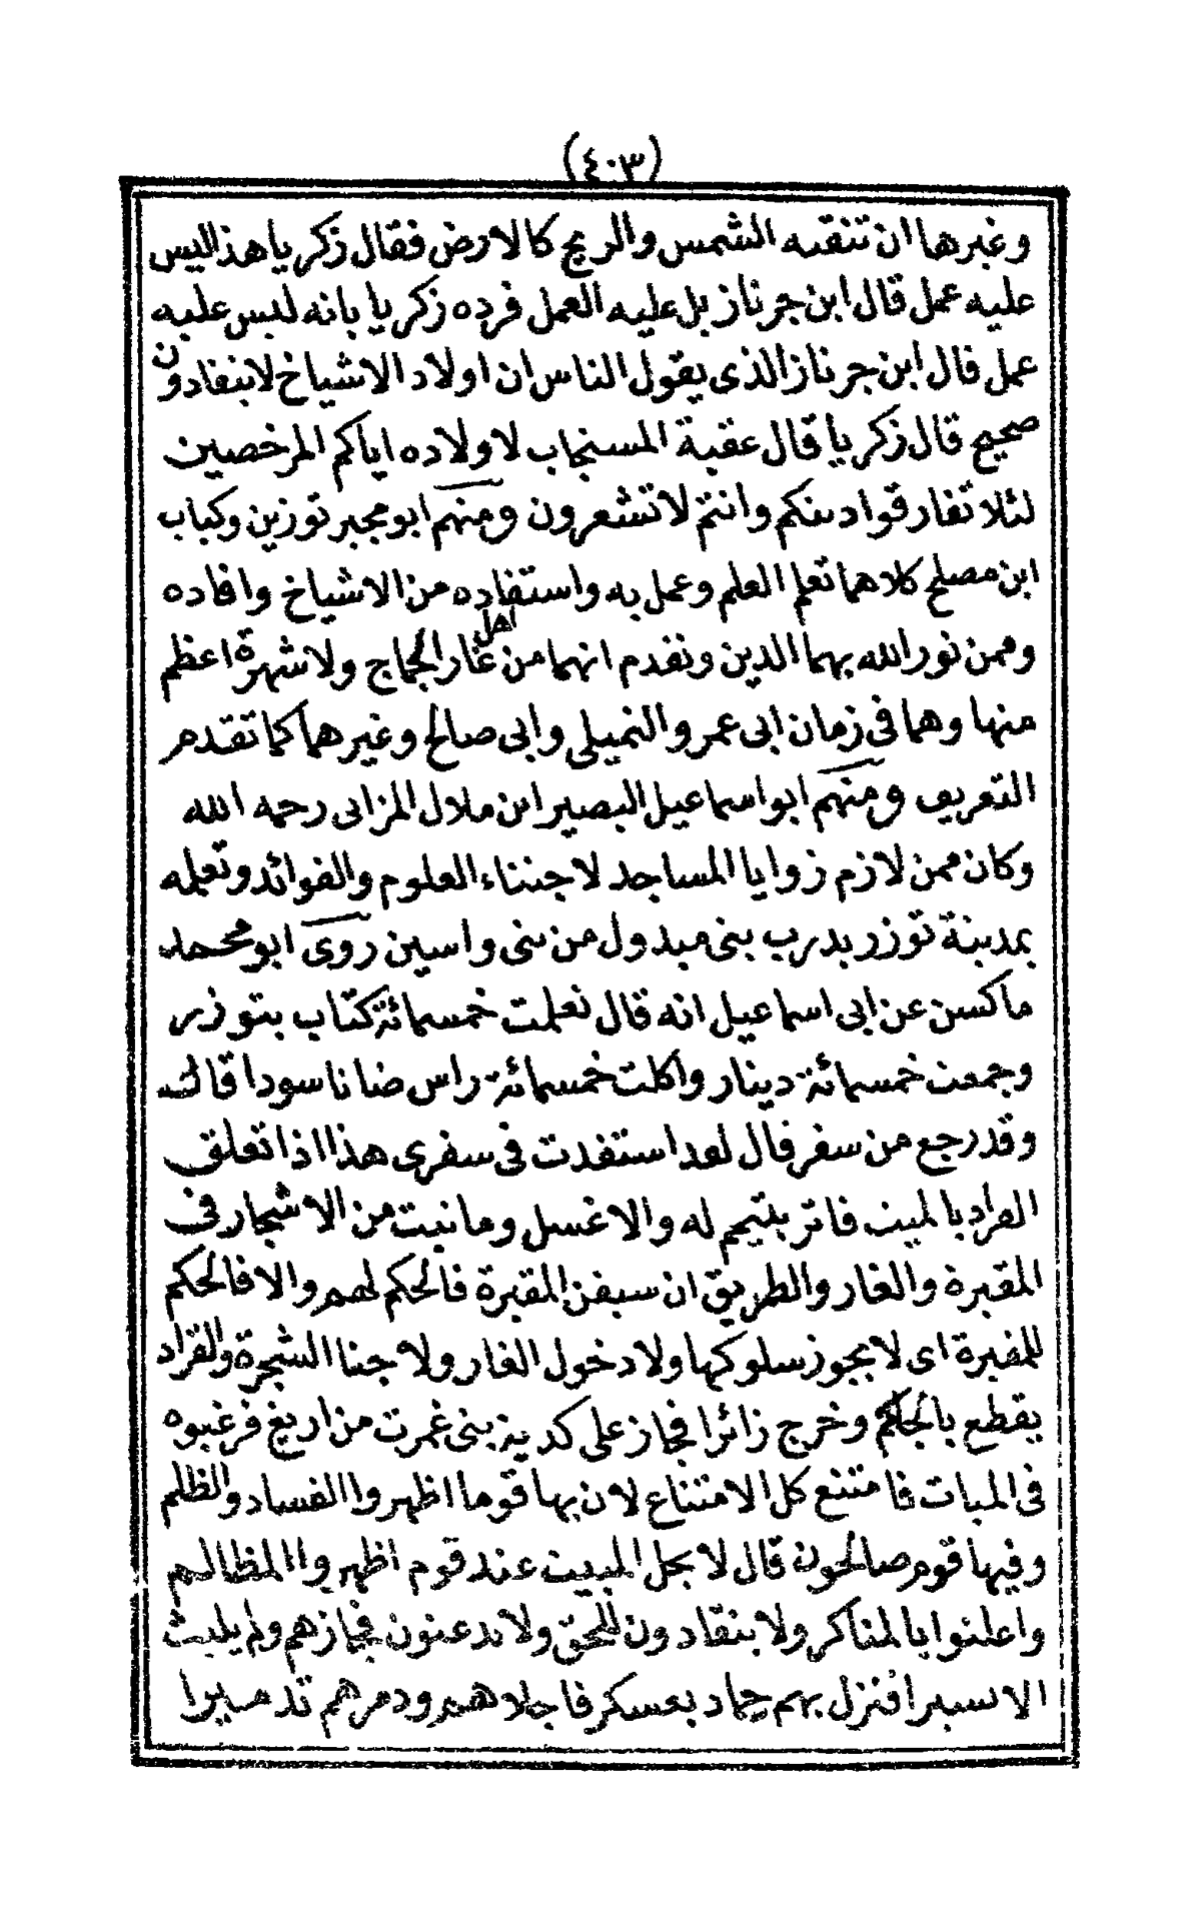 (٤٠٣)
وغيرها ان تنقيه الشمس والريح كالارض فقال زكريا هذا ليس
عليه عمل قال ابن جرناز بل عليه العمل فرده زكريا بانه ليس عليه
عمل قال ابن جرناز الذى يقول الناس ان اولاد الاشياخ لا ينقادون
صحيح قال زكريا قال عقبة المستجاب لاولاده اياكم المرخصين
لئلا تفارقوا دينكم وانتم لا تشعرون ومنهم ابو مجبر توزين وكباب
ابن مصلح كلاهما تعلم العلم وعمل به واستفاده من الاشياخ وافاده
وممن نور الله بهما الدين وتقدم انهما من اهل غار الجماج ولا شهرة اعظم
منها وهما فى زمان ابى عمرو النميلى وابى صالح وغيرهما كما تقدم
التعريف ومنهم ابو اسماعيل البصير ابن ملال المزاتى رحمه الله
وكان ممن لازم زوايا المساجد لاجتناء العلوم والفوائد وتعلمه
بمدينة توزر بدرب بنى ميدول من بنى واسين روى ابو محمد
ماكسن عن ابى اسماعيل انه قال تعلمت خمسمائة كتاب بتوزر
وجمعت خمسمائة دينار واكلت خمسمائة راس ضانا سودا قالت
وقد رجع من سفر قال لقد استفدت فى سفرى هذا اذا تعلق
القراد بالميت فاتر يتيمم له والا غسل وما نبت من الاشجار فى
المقبرة والغار والطريق ان سبقن المقبرة فالحكم لهم والا فالحكم
للمقبرة اى لا يجوز سلوكها ولا دخول الغار ولا جنا الشجرة والقراد
يقطع بالجلم وخرج زائرا فجاز على كدية بنى غمرت من اريغ فرغبوه
فى المبات فامتنع كل الامتناع لان بها قوما اظهروا الفساد والظلم
وفيها قوم صالحون قال لا يحل المبيت عند قوم اظهروا المظالم
واعلنوا بالمناكر ولا ينقادون للحق ولا يدعنون فجازهم ولم يلبث
الا يسيرا فنزل بهم حماد بعسكر فاجلاهم ودمرهم تدميرا